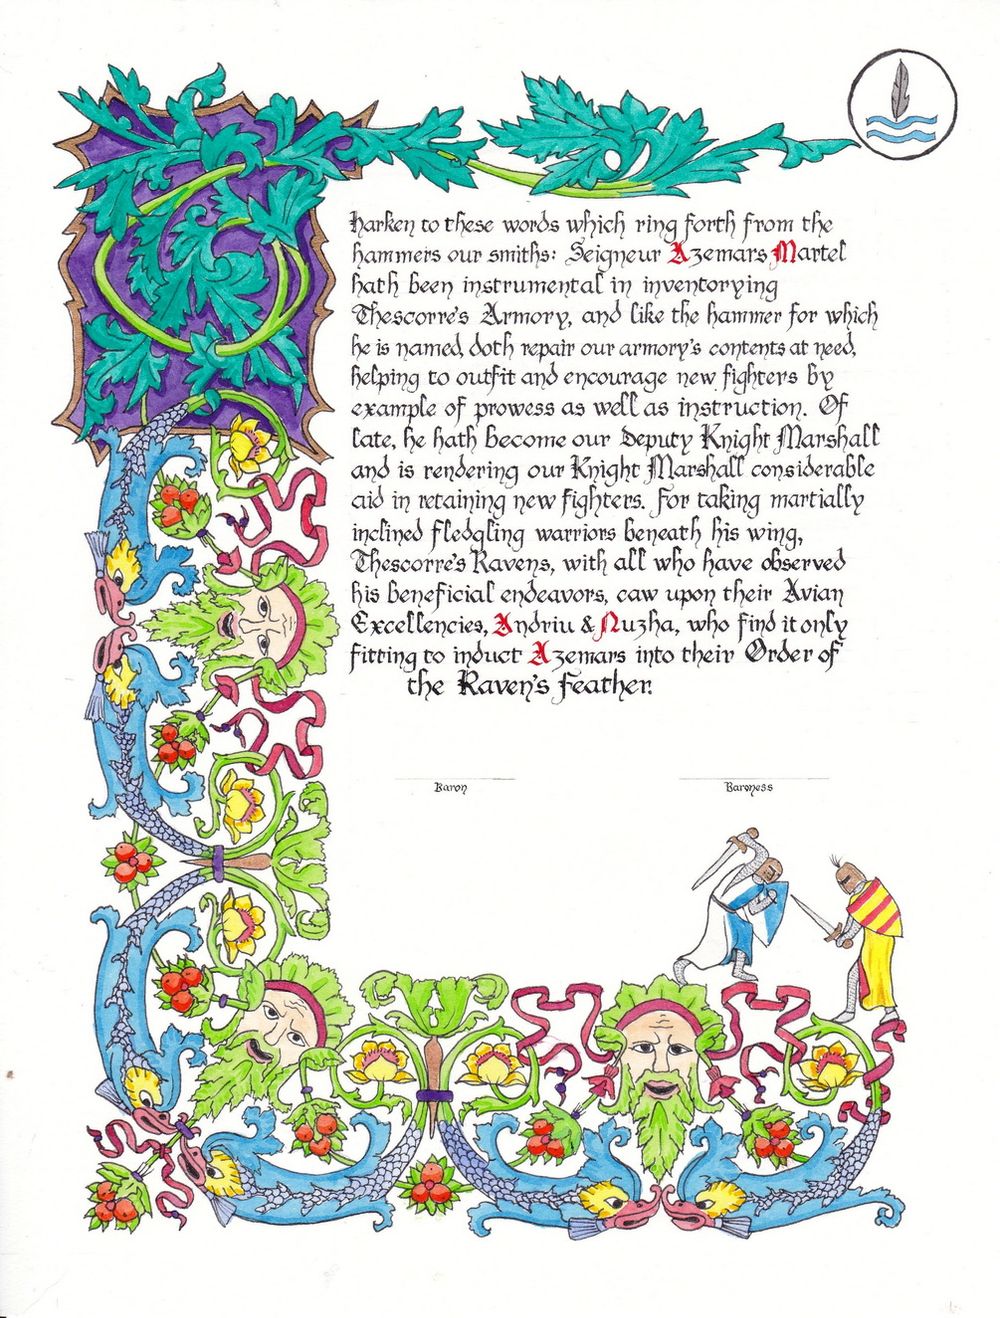 Harken to these words which ring forth from the
hammers our smiths: Seigneur Azemars Martel
hath been instrumental in inventorying
Thescorre's Armory, and like the hammer for which
he is named, doth repair our armory's contents at need,
helping to outfit and encourage new fighters by
example of prowess as well as instruction. Of
late, he hath become our Deputy Knight Marshall
and is rendering our Knight Marshall considerable
aid in retaining new fighters. For taking martially
inclined fledgling warriors beneath his wing,
Thescorre's Ravens, with all who have observed
his beneficial endeavors, caw upon their Avian
Excellencies, Andriu & Nuzha, who find it only
fitting to induct Azemars into their Order of
the Raven's Feather.
Baron Baroness